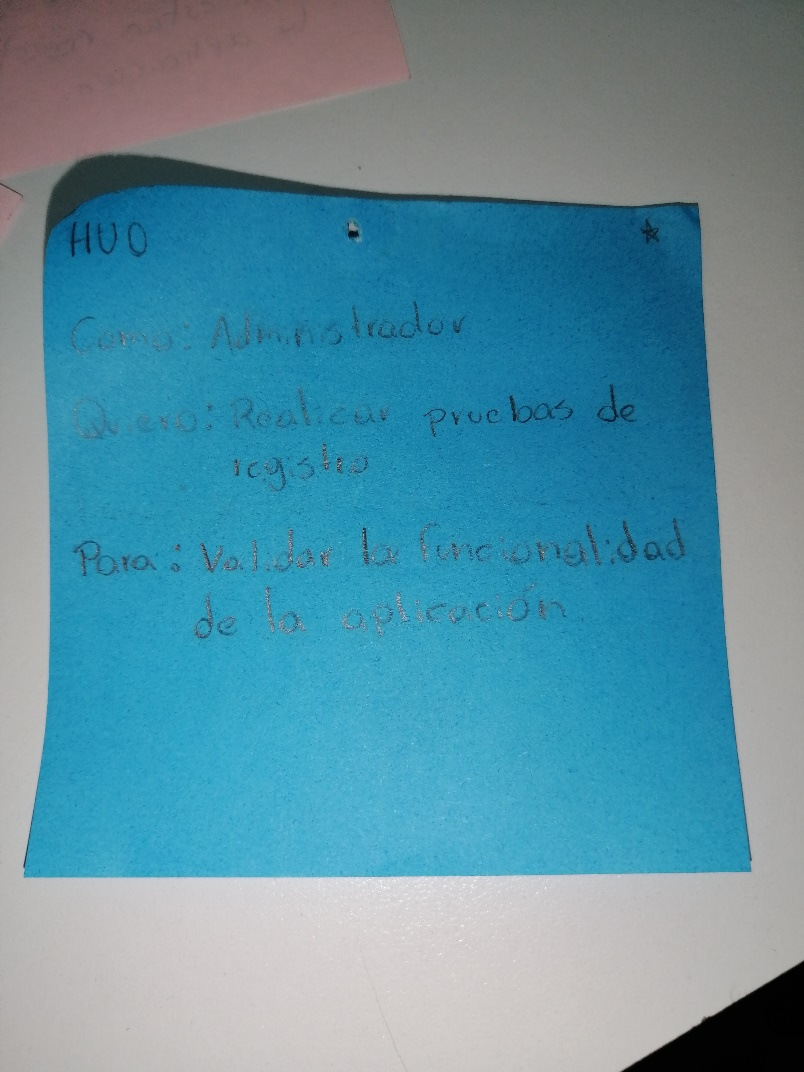 HU0
Como: Administrador
Quiero: Realizar pruebas de
registro
Para: Validar la funcionalidad
de la aplicación